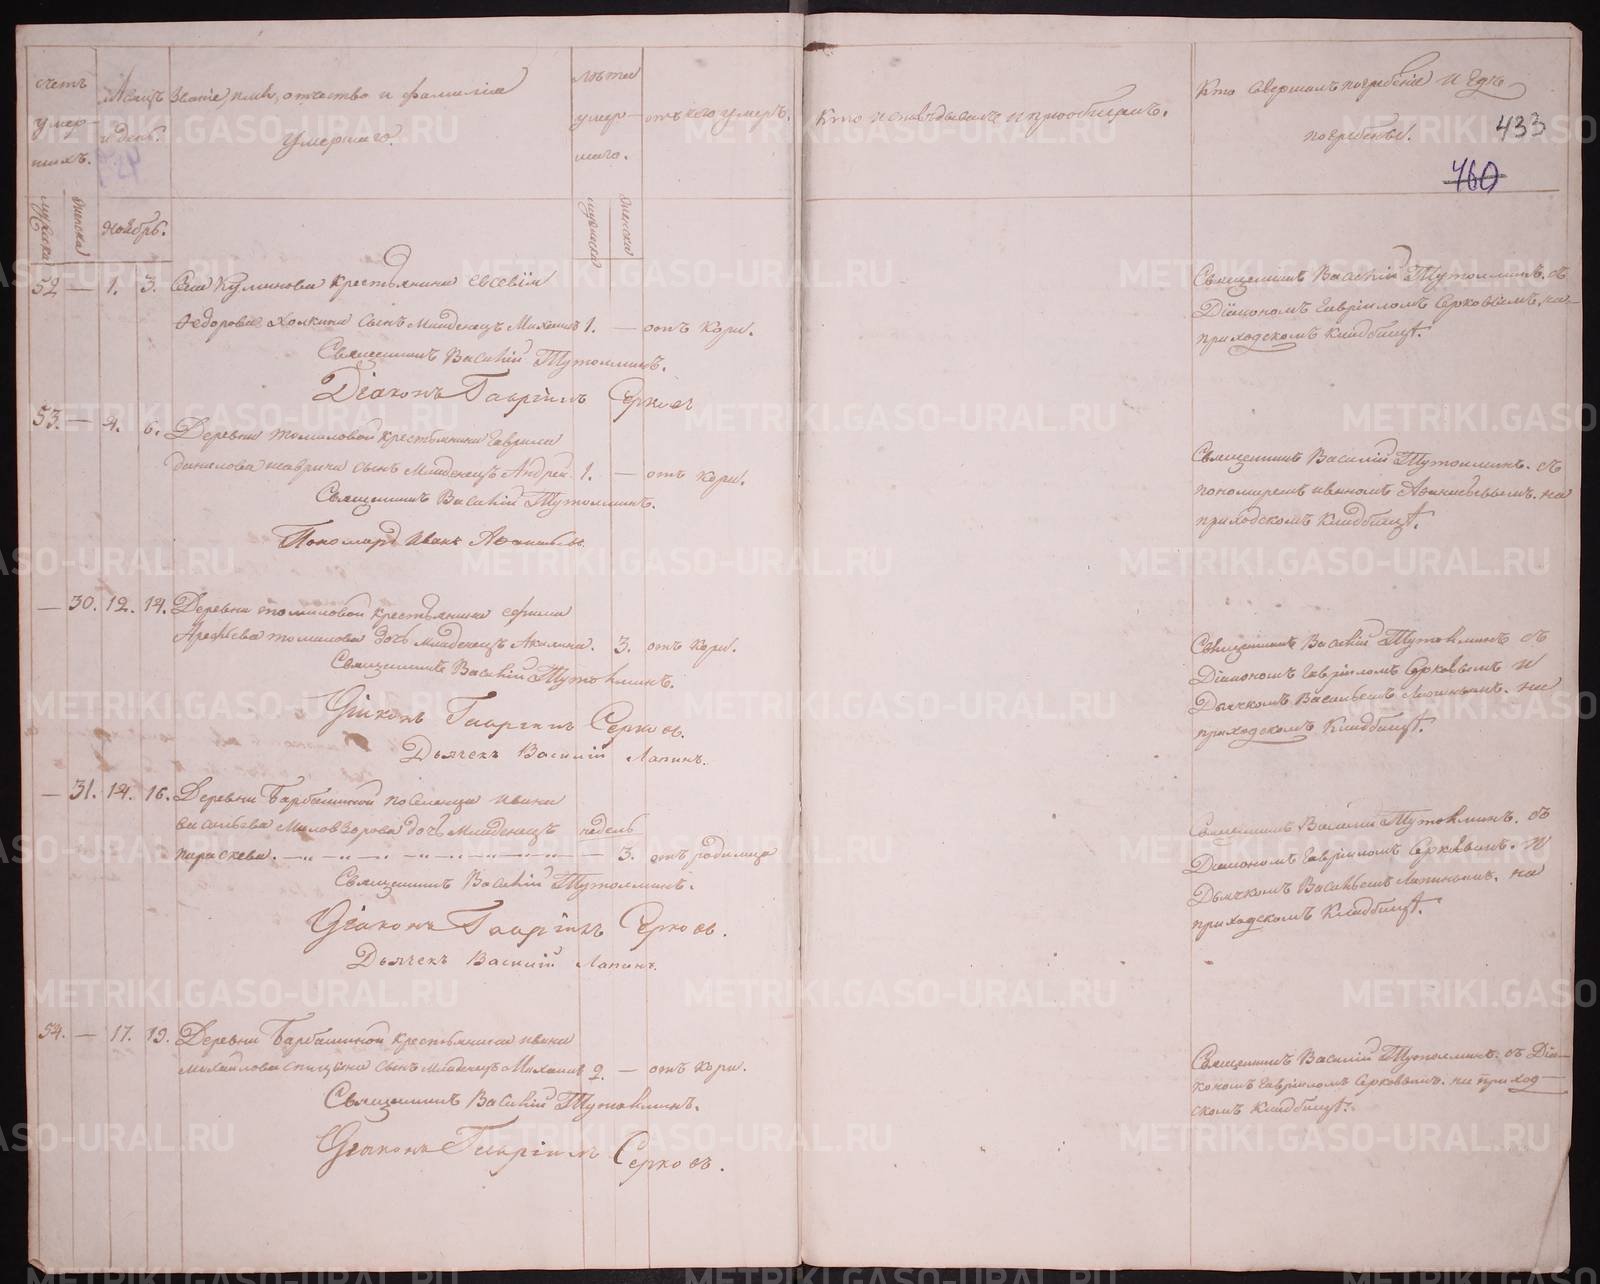 счетъ умер-шихъ.
Мѣсяцъ и день.
Званіе, имя, отчество и фамилія
Умершаго.
лѣта умер-шаго.
отъ чего умеръ.
Кто исповѣдывалъ и пріобщалъ.
Кто совершалъ погребеніе и гдѣ
погребены.
433
460
мужска
женска
Ноябрь.
мужска
женска
52 — 1. 3. Села Куминова крестьянина Евсевія
Федорова Холкина сынъ младенецъ Михаилъ 1. — отъ кори.
Священникъ Василій Тутолминъ.
Діаконъ Гавріилъ Серковъ
Священникъ Василій Тутолминъ. съ
Діакономъ Гавріиломъ Серковымъ, на
приходскомъ кладбищѣ.
53. — 4. 6. Деревни Томиловой крестьянина Гаврила
Данилова сынъ младенецъ Андрей 1. — отъ кори.
Священникъ Василій Тутолминъ.
Пономарь Иванъ Афанасьевъ
Священникъ Василій Тутолминъ. съ
пономаремъ Иваномъ Афанасьевымъ. на
приходскомъ кладбищѣ.
— 30. 12. 14. Деревни Томиловой крестьянина Ефима
Арефьева Томилова дочь младенецъ Акилина. 3. отъ кори.
Священникъ Василій Тутолминъ.
Діаконъ Гавріилъ Серковъ.
Дьячекъ Василій Лапинъ.
Священникъ Василій Тутолминъ съ
Діакономъ Гавріиломъ Серковымъ и
Дьячкомъ Васильемъ Лапинымъ. на
приходскомъ кладбищѣ.
— 31. 14. 16. Деревни Барбашиной поселенца Ивана
Васильева Миловзорова дочь младенецъ недель
Параскева. — — — — — 3. отъ родимца
Священникъ Василій Тутолминъ.
Діаконъ Гавріилъ Серковъ.
Дьячекъ Василій Лапинъ.
Священникъ Василій Тутолминъ. съ
Діакономъ Гавріиломъ Серковымъ. и
Дьячкомъ Васильемъ Лапинымъ. на
приходскомъ кладбищѣ.
54. — 17. 19. Деревни Барбашиной крестьянина Ивана
Михайлова Спицына сынъ младенецъ Михаилъ 2. — отъ кори.
Священникъ Василій Тутолминъ.
Діаконъ Гавріилъ Серковъ.
Священникъ Василій Тутолминъ. съ Діа-
кономъ Гавріиломъ Серковымъ. на приход-
скомъ кладбищѣ.
METRIKI.GASO-URAL.RU